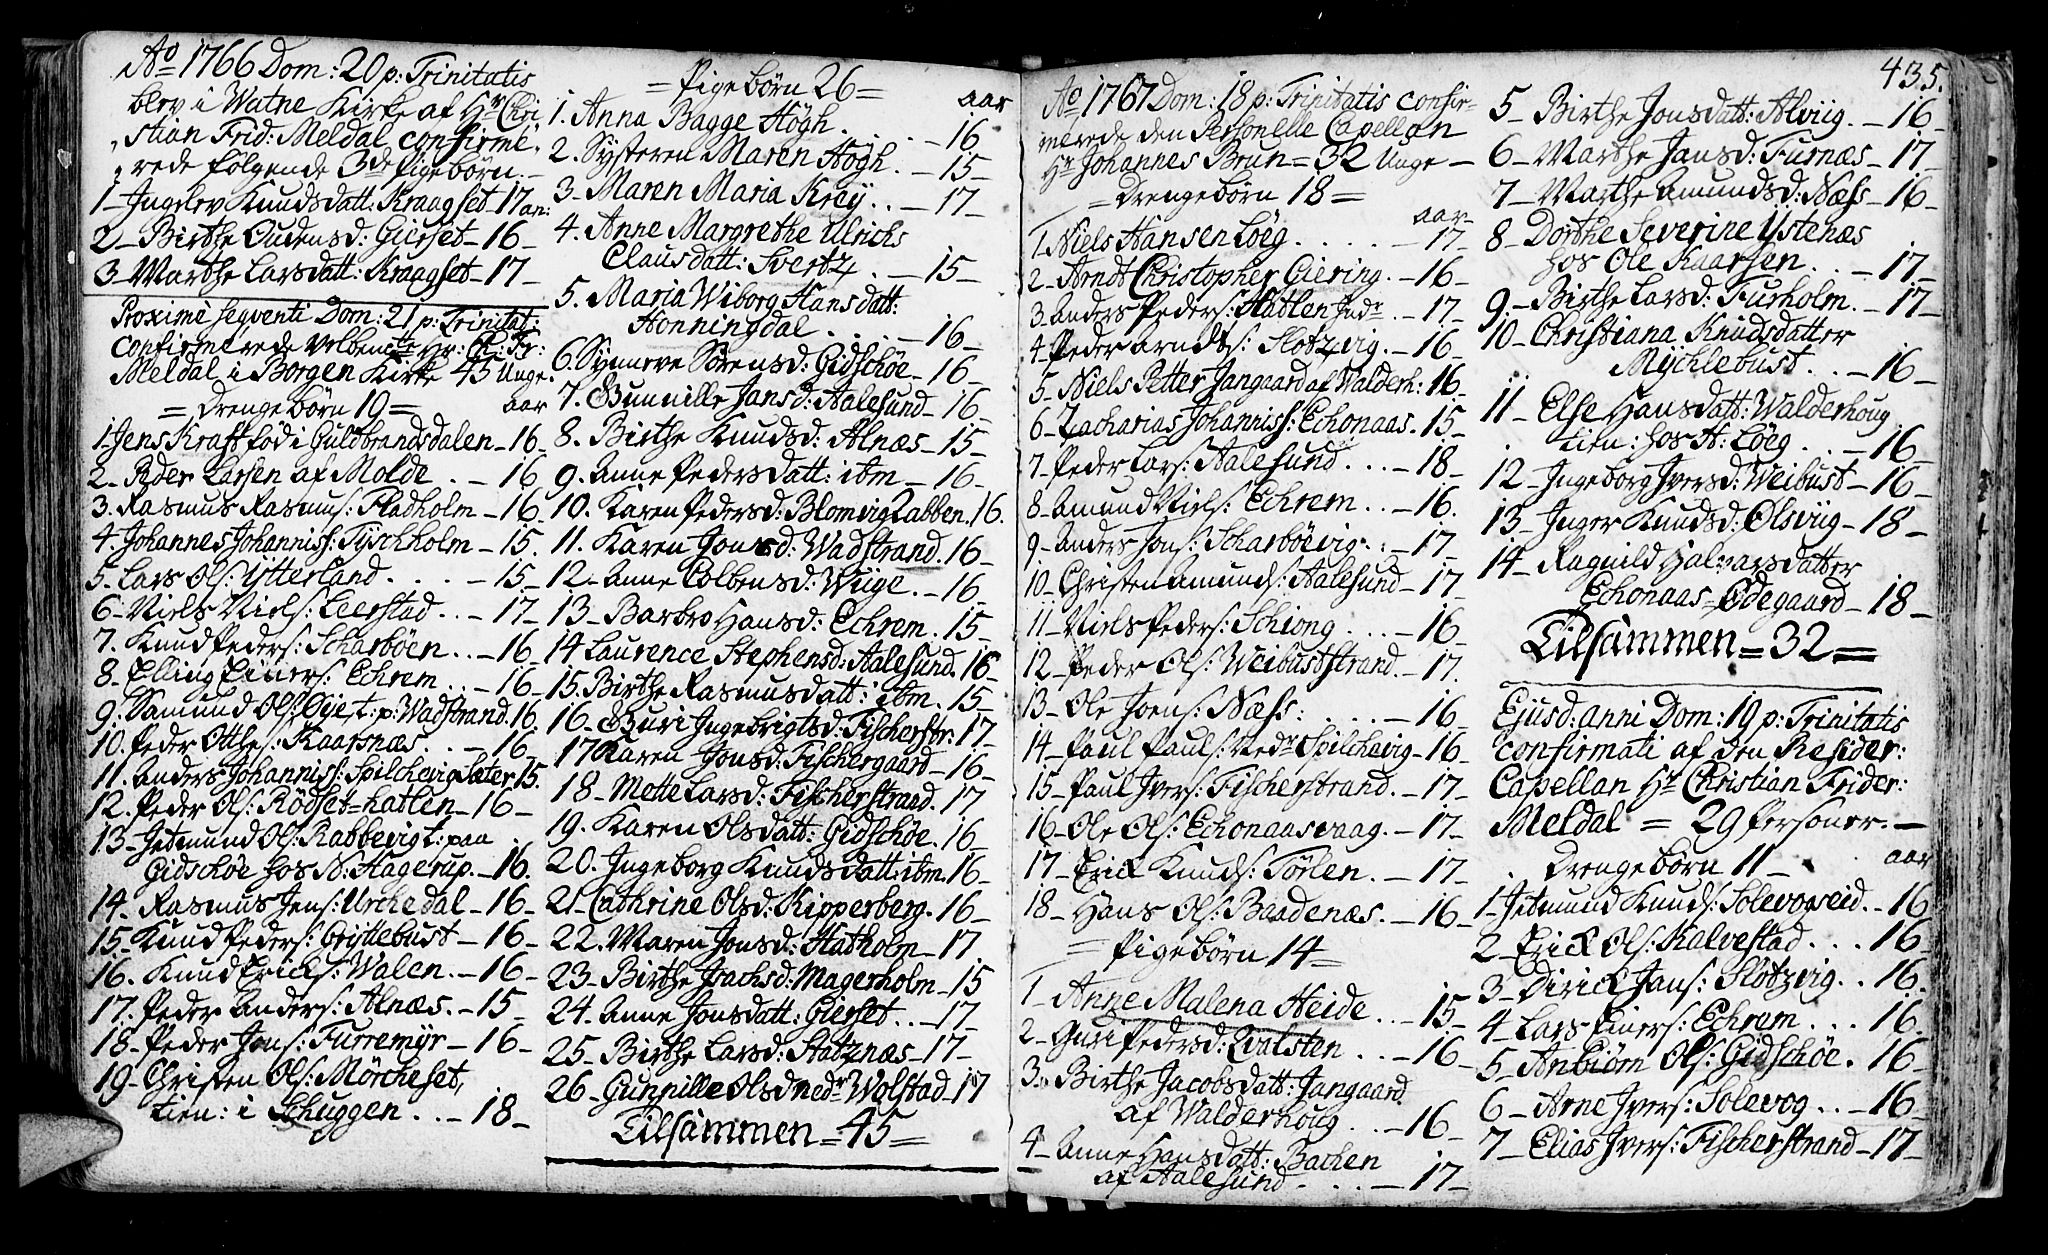 Ao 1766 Dom: 20 p: Trinitatis
blev i Watne Kirke af Hr Chri
stian Frid: Meldal confirme
rede følgende 3de Pigebørn. -
1 - Ingelev Knudsdatt: Kraagset - 17 an:
2 - Birthe Oudensd: Giørset - 16 -
3 - Marthe Larsdatt: Kraagset - 17 -
Proximè seqventi Dom: 21 p: Trinitat:
confirmerede velbemte Hr: Chr: Fr:
Meldal i Borgen Kirke 45 Unge.
= Drengebørn 19 = aar
1. Jens Kraft fød i Guldbrandsdalen - 16 -
2 - Peder Larsen af Molde . - 16
3. Rasmus Rasmus: Fladholm - 16 -
4. Johannes Johanniss: Tyschholm - 15.
5. Lars Ols: Ytterland . . . . - 15 -
6 - Niels Niels: Leerstad . . - 17 -
7. Knud Peders: Scharbøen . . - 16 -
8 - Elling Einers: Echrem . . - 16 -
9. Samund Ols: Gjest: p: Wadstrand. 16
10. Peder Ottes: Kaarsnæs . . . - 16 -
11. Anders Johanniss: Spilchevig Sæter. 15.
12. Peder Ols: Rödset = hatlen - 16 -
13 - Jetmund Ols: Rabbevig t: paa
Gidschöe hos N: Hagerup. - 16.
14 - Rasmus Jens: Urchedal - 16 -
15. Knud Peders: Gristlebust - 16 -
16. Knud Ericks: Walen. - 16 -
17. Peder Anders: Alnæs. - 15 -
18 - Peder Jons: Furremyr - 16 -
19 - Christen Ols: Mörcheset,
tien: i Schuggen . . - 18 -
= Pigebørn 26 = aar
1. Anna Bagge Högh . . . . - 16
2. Systeren Maren Högh. - 15 -
3 - Maren Maria Krey . . - 17 -
4. Anne Margrethe Ulrichs
Clausdatt: Svertz . - 15 -
5. Maria Wiborg Hansdatt:
Honningdal . . . - 16 -
6. Synneve Sörensd: Gidschöe - 16 -
7. Gunnille Jansd: Aalesund - 16 -
8. Birthe Knudsd: Alnæs - 15 -
9. Anne Pedersdatt: ibm - 16 -
10. Karen Pedersd: Blomvig Labben. 16.
11. Karen Jonsd: Wadstrand. 16 -
12 - Anne Colbensd: Wiige . - 16 -
13 - Barbro Hansd: Echrem. 15 -
14 Laurence Stephensd: Aalesund. 16 -
15. Birthe Rasmusdatt: ibm. 15 -
16. Guri Ingebrigtsd: Fischerstr: 17 -
17 Karen Jonsd: Fischergaard - 16 -
18 - Mette Larsd: Fischerstrand. 17
19. Karen Olsdatt: Gidschöe. 16 -
20. Ingeborg Knudsdatt: ibm. 16 -
21 - Cathrine Olsd: Kipperberg. 16 -
22. Maren Jonsd: Hatholm - 17
23 - Birthe Isachsd: Magerholm - 15
24. Anne Jonsdatt: Gierset . . - 17 -
25 - Birthe Larsd: Hatznæs - 17 -
26 - Gunnille Olsd nedr Wolstad - 17
Tilsammen = 45 =
435.
Ao 1767 Dom: 18 p: Trinitatis confir-
merede den Personelle Capellan
Hr Johannes Brun = 32 Unge -
= Drengebørn 18 =
aar
1 Niels Hansen Löeg . . . . . - 17 -
2 - Arndt Christopher Giering. - 16 -
3 - Anders Peders: Hatlen Indr . - 17 -
4 - Peder Arndts: Slotzvig. - 16 -
5 - Niels Petter Jangaard af Walderh: 16 -
6 - Zacharias Johanniss: Echonaas. 15 -
7 - Peder Lars: Aalesund . . . - 18 -
8 - Amund Niels: Echrem . . - 16.
9 - Anders Jons: Scharbøevig . : - 17 -
10 - Christen Amunds: Aalesund - 17 -
11 - Niels Peders: Schiong . . . - 16 -
12 - Peder Ols: Weibuststrand. - 17.
13 - Ole Joens: Næss: . . . . - 16 -
14 - Paul Pauls: Nedr Spilchevig - 16 -
15 - Paul Ivers: Fischerstrand. - 17 -
16 - Ole Ols: Echonaasvaag. - 17 -
17 - Erick Knuds: Törlen. - 17 -
18 - Hans Ols: Beadenæs. - 16 -
= Pigebørn 14 =
1 - Anne Malena Heide . . - 15 -
2 - Guri Pedersd: Qvalsten . . . - 16 -
3. Birthe Jacobsdatt: Jangaard
af Walderhoug . . - 16 -
4 - Anne Hansdatt: Bachen
af Aalesund . . . - 17 -
5 - Birthe Jonsdatt: Alviig. - 16 -
6 - Marthe Jansd: Furnæs - 17 -
7 - Marthe Amundsd: Næss - 16 -
8 - Dorthe Severine Ystenæs
hos Ole Kaarsen . . - 17 -
9 - Birthe Larsd: Furholm. - 17 -
10 - Christiana Knudsdatter
Mychlebust . . - 16 -
11 - Else Hansdatt: Walderhoug
tien: hos H: Löeg . . - 16 -
12 - Ingeborg Iversd: Weibust - 16 -
13 - Inger Knudsd: Ölsviig - 18 -
14 - Ragnild Halvarsdatter
Echonaas = Ødegaard - 18 -
Tilsammen = 32 =
Ejusd: anni Dom: 19 p: Trinitatis
confirmati af den Resider:
Capellan Hr Christian Frider:
Meldal = 29 Personer. -
Drengebørn 11 - aar
1 - Jetmund Knuds: Solevogseid. - 16
2 - Erick Ols: Kalvestad . . . 16 -
3 - Dirick Jans: Slotzvig . . 16.
4 - Lars Einers: Echrem . . . 16.
5 - Anbiørn Ols: Gidschöe. 16 -
6 - Arne Ivers: Solevog . . - 16 -
7 - Elias Ivers: Fischerstrand - 17 -